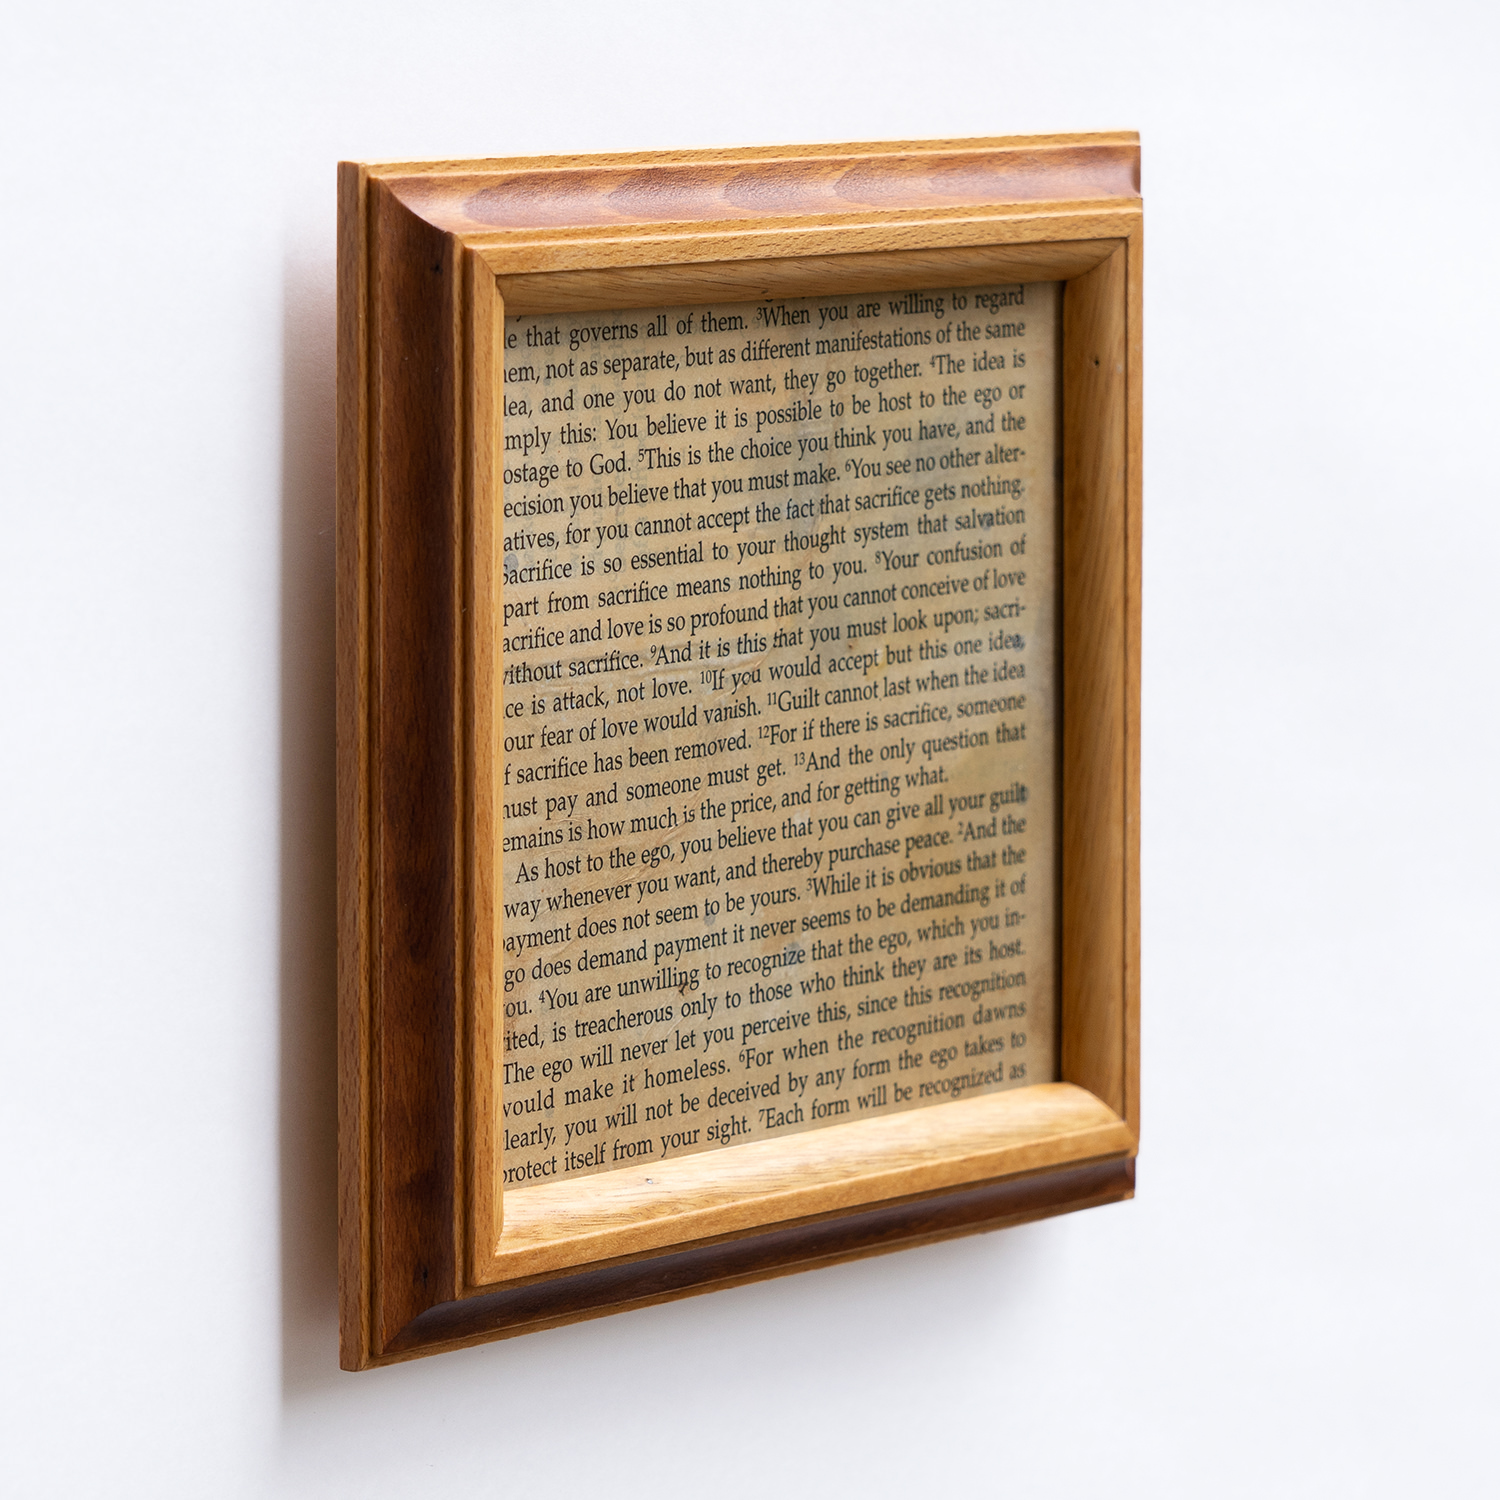 that governs all of them. ³When you are willing to regard
em, not as separate, but as different manifestations of the same
ea, and one you do not want, they go together. ⁴The idea is
mply this: You believe it is possible to be host to the ego or
ostage to God. ⁵This is the choice you think you have, and the
ecision you believe that you must make. ⁶You see no other alter-
atives, for you cannot accept the fact that sacrifice gets nothing.
Sacrifice is so essential to your thought system that salvation
part from sacrifice means nothing to you. ⁸Your confusion of
acrifice and love is so profound that you cannot conceive of love
ithout sacrifice. ⁹And it is this that you must look upon; sacri-
ce is attack, not love. ¹⁰If you would accept but this one idea,
our fear of love would vanish. ¹¹Guilt cannot last when the idea
f sacrifice has been removed. ¹²For if there is sacrifice, someone
ust pay and someone must get. ¹³And the only question that
emains is how much is the price, and for getting what.
As host to the ego, you believe that you can give all your guilt
way whenever you want, and thereby purchase peace. ²And the
ayment does not seem to be yours. ³While it is obvious that the
go does demand payment it never seems to be demanding it of
ou. ⁴You are unwilling to recognize that the ego, which you in-
ited, is treacherous only to those who think they are its host.
The ego will never let you perceive this, since this recognition
would make it homeless. ⁶For when the recognition dawns
learly, you will not be deceived by any form the ego takes to
protect itself from your sight. ⁷Each form will be recognized as